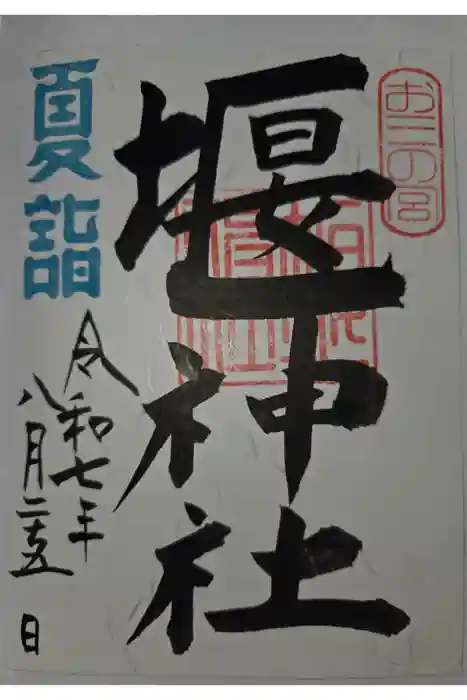 おニの宮
堰神社
夏詣
令和七年
八月二十五日